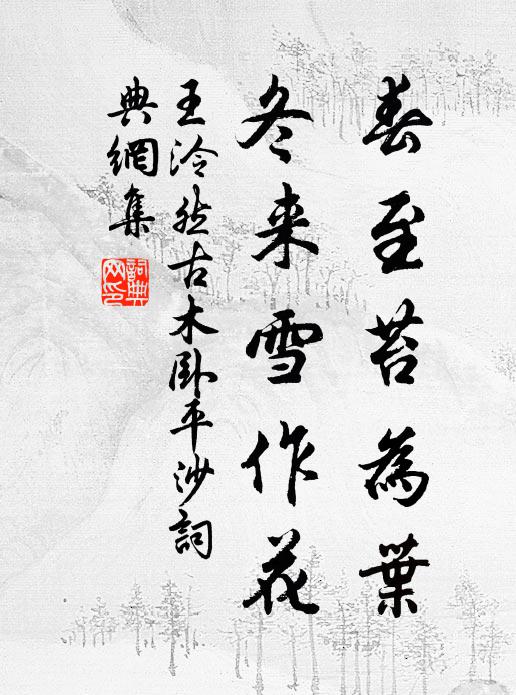 春至苔為葉
冬来雪作花
王泠然古木卧平沙詞
典網集
詞典
网印